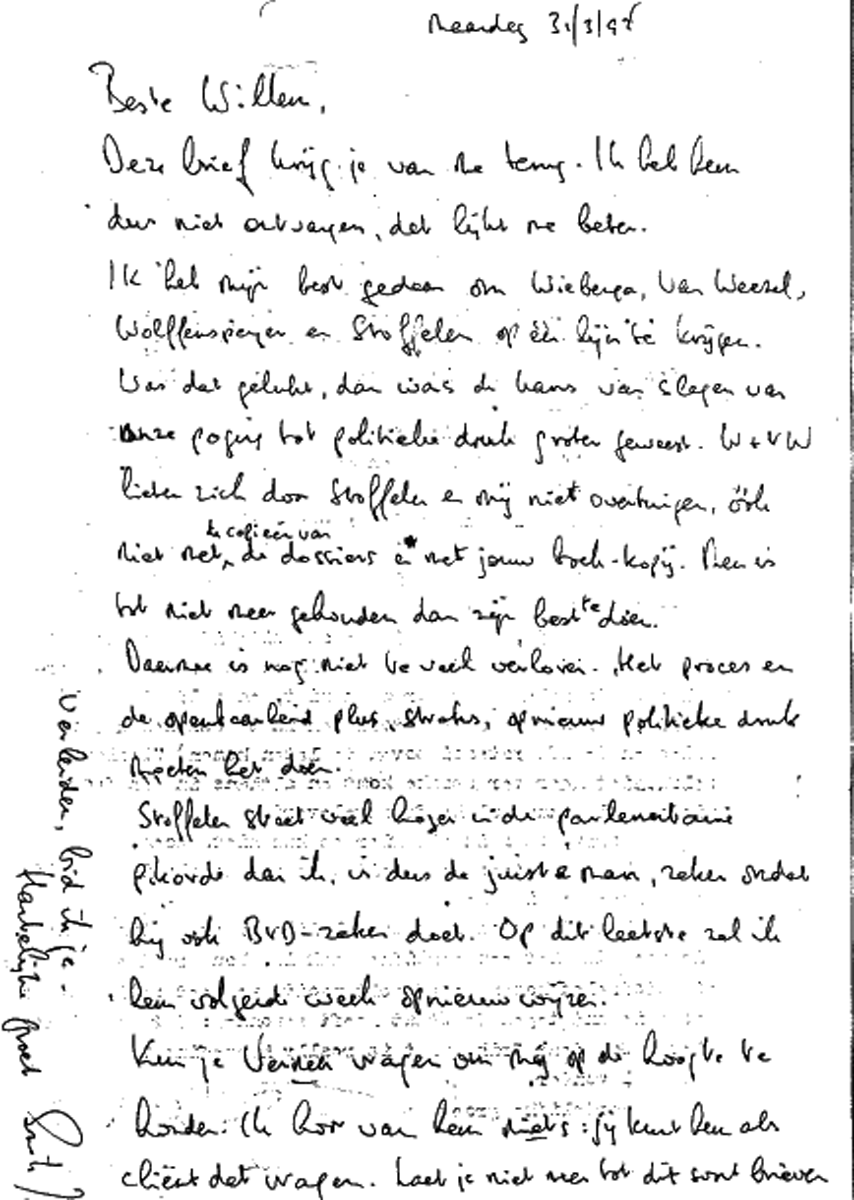 Maandag 31/3/97
Beste Willem,
Deze brief krijg je van me terug. Ik heb hem
dus niet ontvangen, dat lijkt me beter.
Ik heb mijn best gedaan om Wiebenga, Van Weezel,
Wolffensperger en Stoffelen op één lijn te krijgen.
Was dat gelukt, dan was de kans van slagen van
onze poging tot politieke druk groter geweest. W + VW
lieten zich door Stoffelen en mij niet overtuigen, óók
de copieën van
niet met de dossiers en met jouw boek-kopij. Men is
tot niet meer gehouden dan zijn best te doen.
Daarmee is nog niet te veel verloren. Het proces en
de openbaarheid plus, straks, opnieuw politieke druk
moeten het doen.
Stoffelen staat veel hoger in de parlementaire
pikorde dan ik, is dus de juiste man, zeker omdat
hij ook BVD-zaken doet. Op dit laatste zal ik
hem volgende week opnieuw wijzen.
Kun je vragen om mij op de hoogte te
houden. Ik hoor van hem niets: jij kunt hem als
cliënt dat vragen. Laat je niet meer tot dit soort brieven
verleiden, bid ik je.
Hartelijke groet